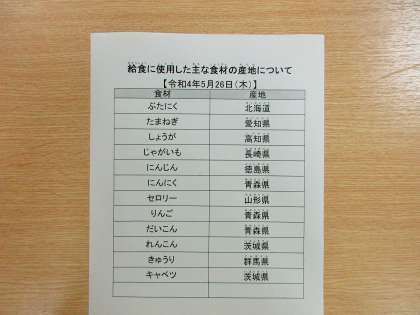 給食に使用した主な食材の産地について
【令和4年5月26日(木)】
食材 産地
ぶたにく 北海道
たまねぎ 愛知県
しょうが 高知県
じゃがいも 長崎県
にんじん 徳島県
にんにく 青森県
セロリー 山形県
りんご 青森県
だいこん 青森県
れんこん 茨城県
きゅうり 群馬県
キャベツ 茨城県